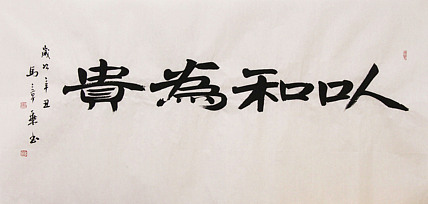 以和為貴
歲次辛丑
馬 書